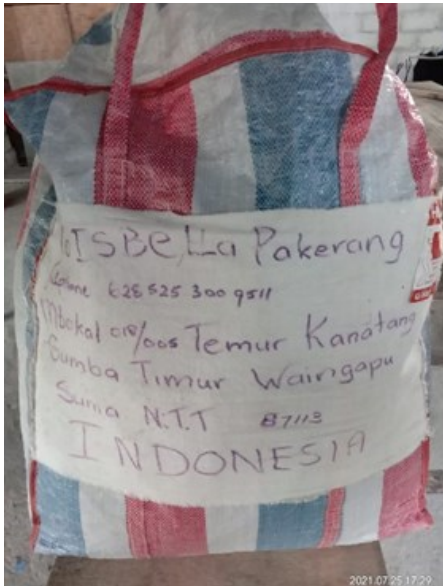 ISBELLa Pakerang
628 525 300 9511
Mbokal 018/005 Temur Kanatang
Sumba Timur Waingapu
Suma N.T.T 87113
INDONESIA
2021.07.25 17:29